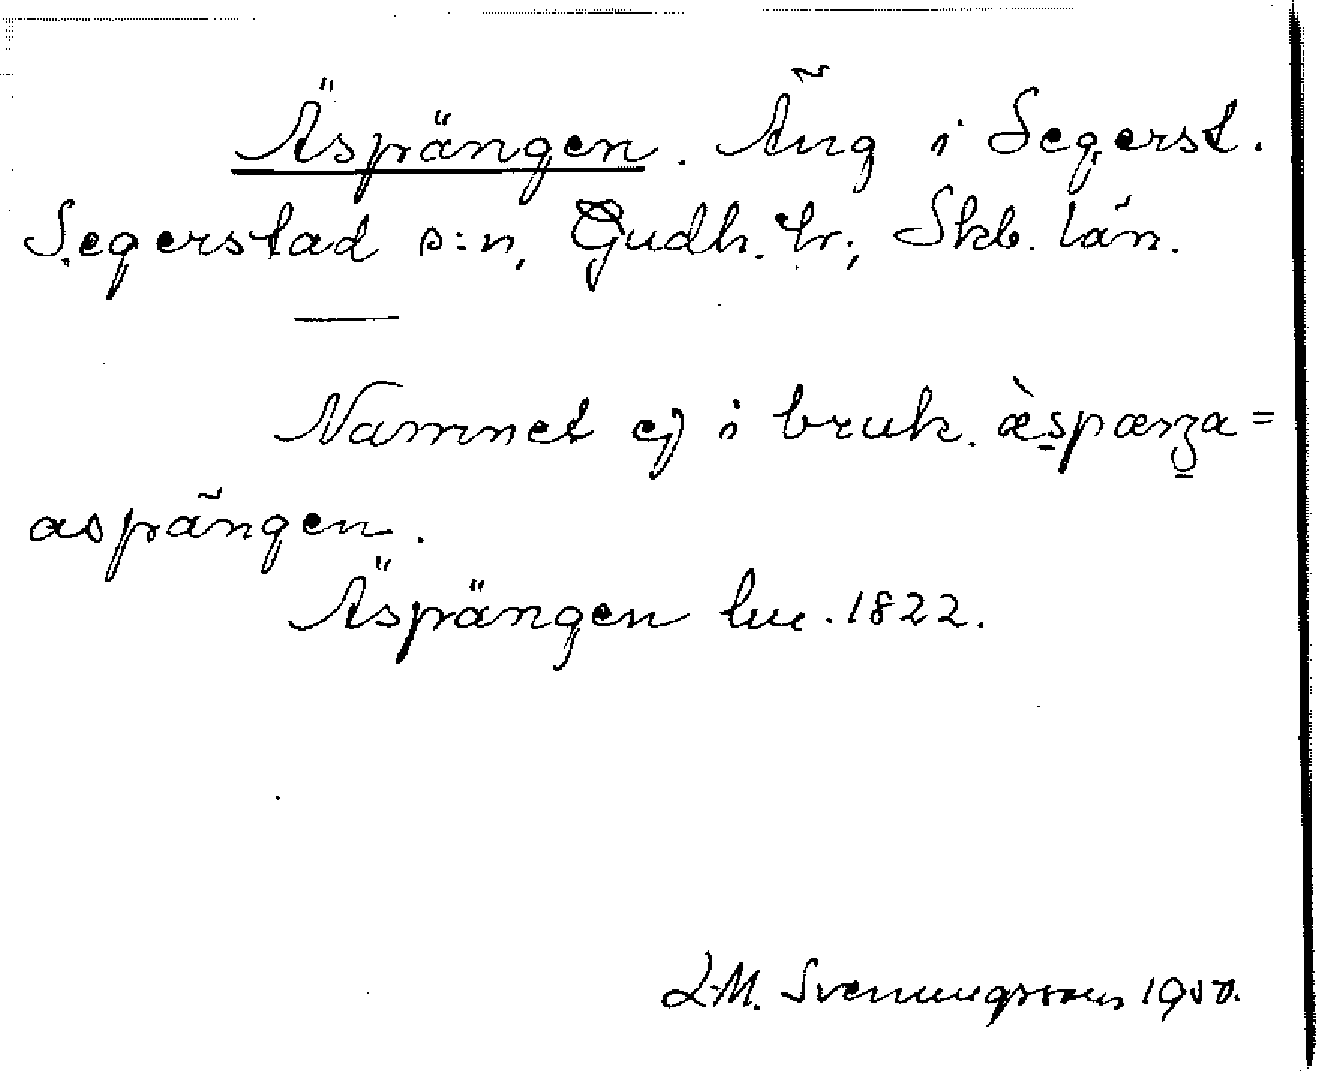 Äspängen. Äng i Segerst.
Segerstad s:n, Gudh. hr; Skb. län.
Namnet ej i bruk. =
aspängen.
Äspängen lue. 1822.
L.M. Svenungsson 1950.